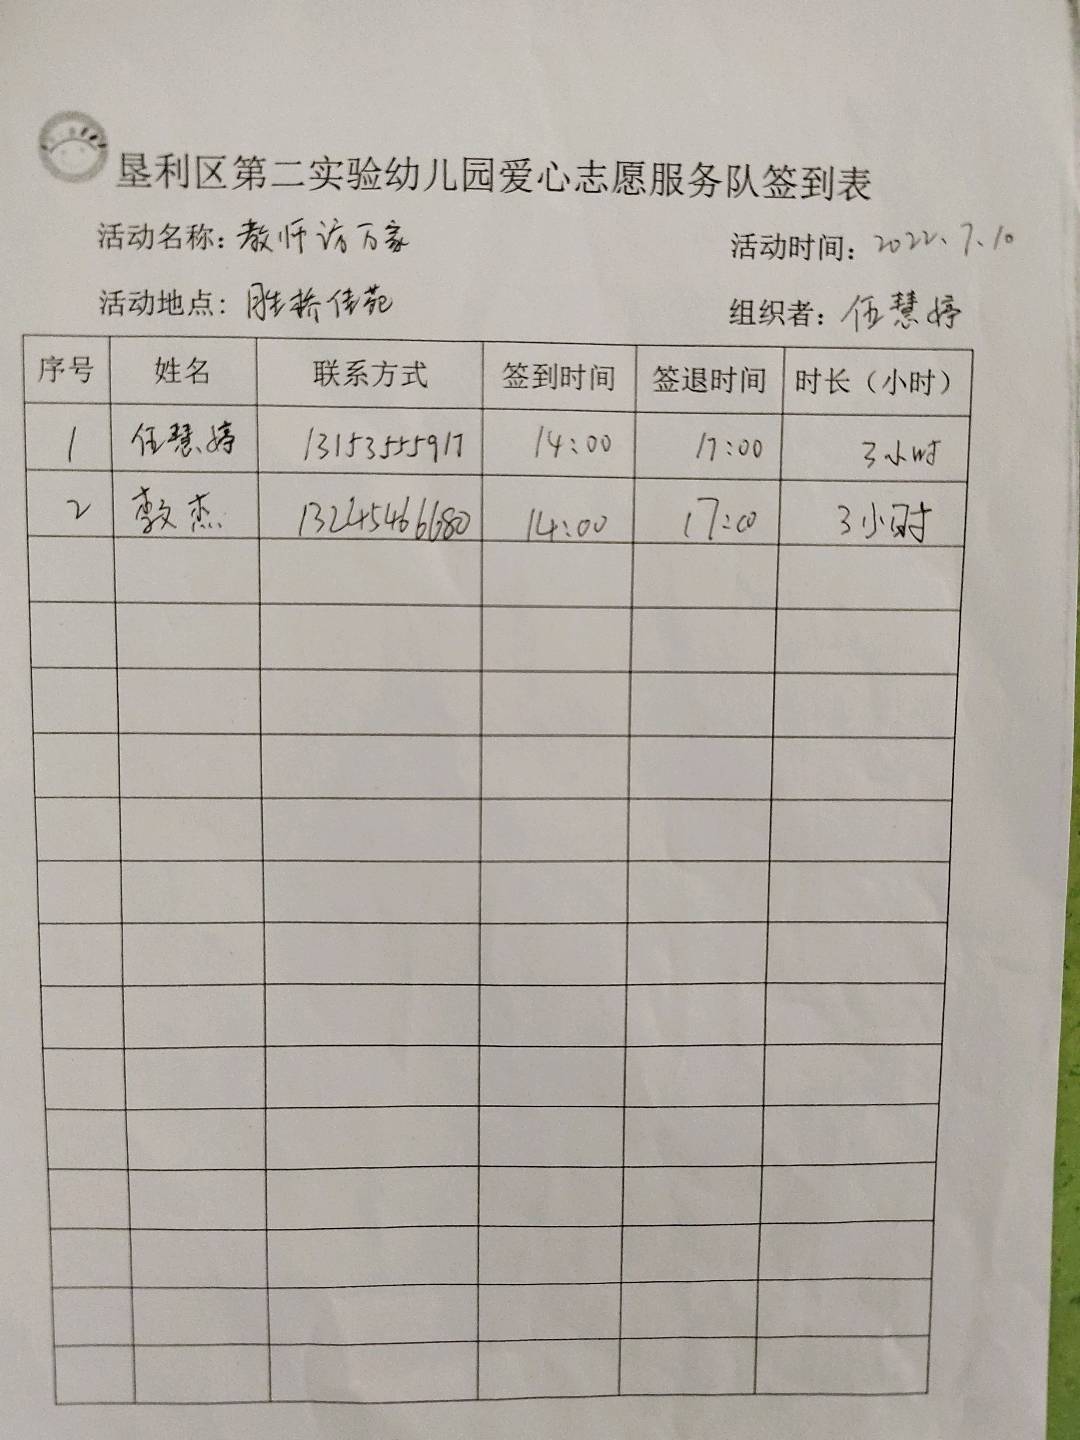 垦利区第二实验幼儿园爱心志愿服务队签到表
活动名称：教师访万家 活动时间：2022.7.10
活动地点：胜桥佳苑 组织者：伍慧婷
序号 姓名 联系方式 签到时间 签退时间 时长（小时）
1 伍慧婷 13153555917 14:00 17:00 3小时
2 杰 13245466680 14:00 17:00 3小时